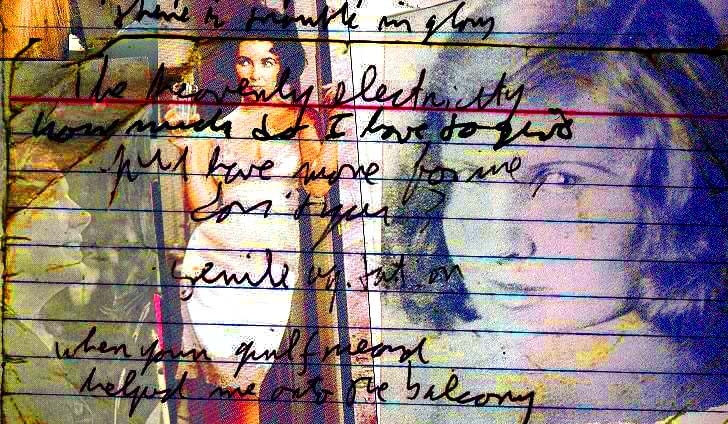 there is trouble in glory
The heavenly electricity
how much do I have to give
have more for me,
don't you?
senile
when your girlfriend
helped me onto the balcony